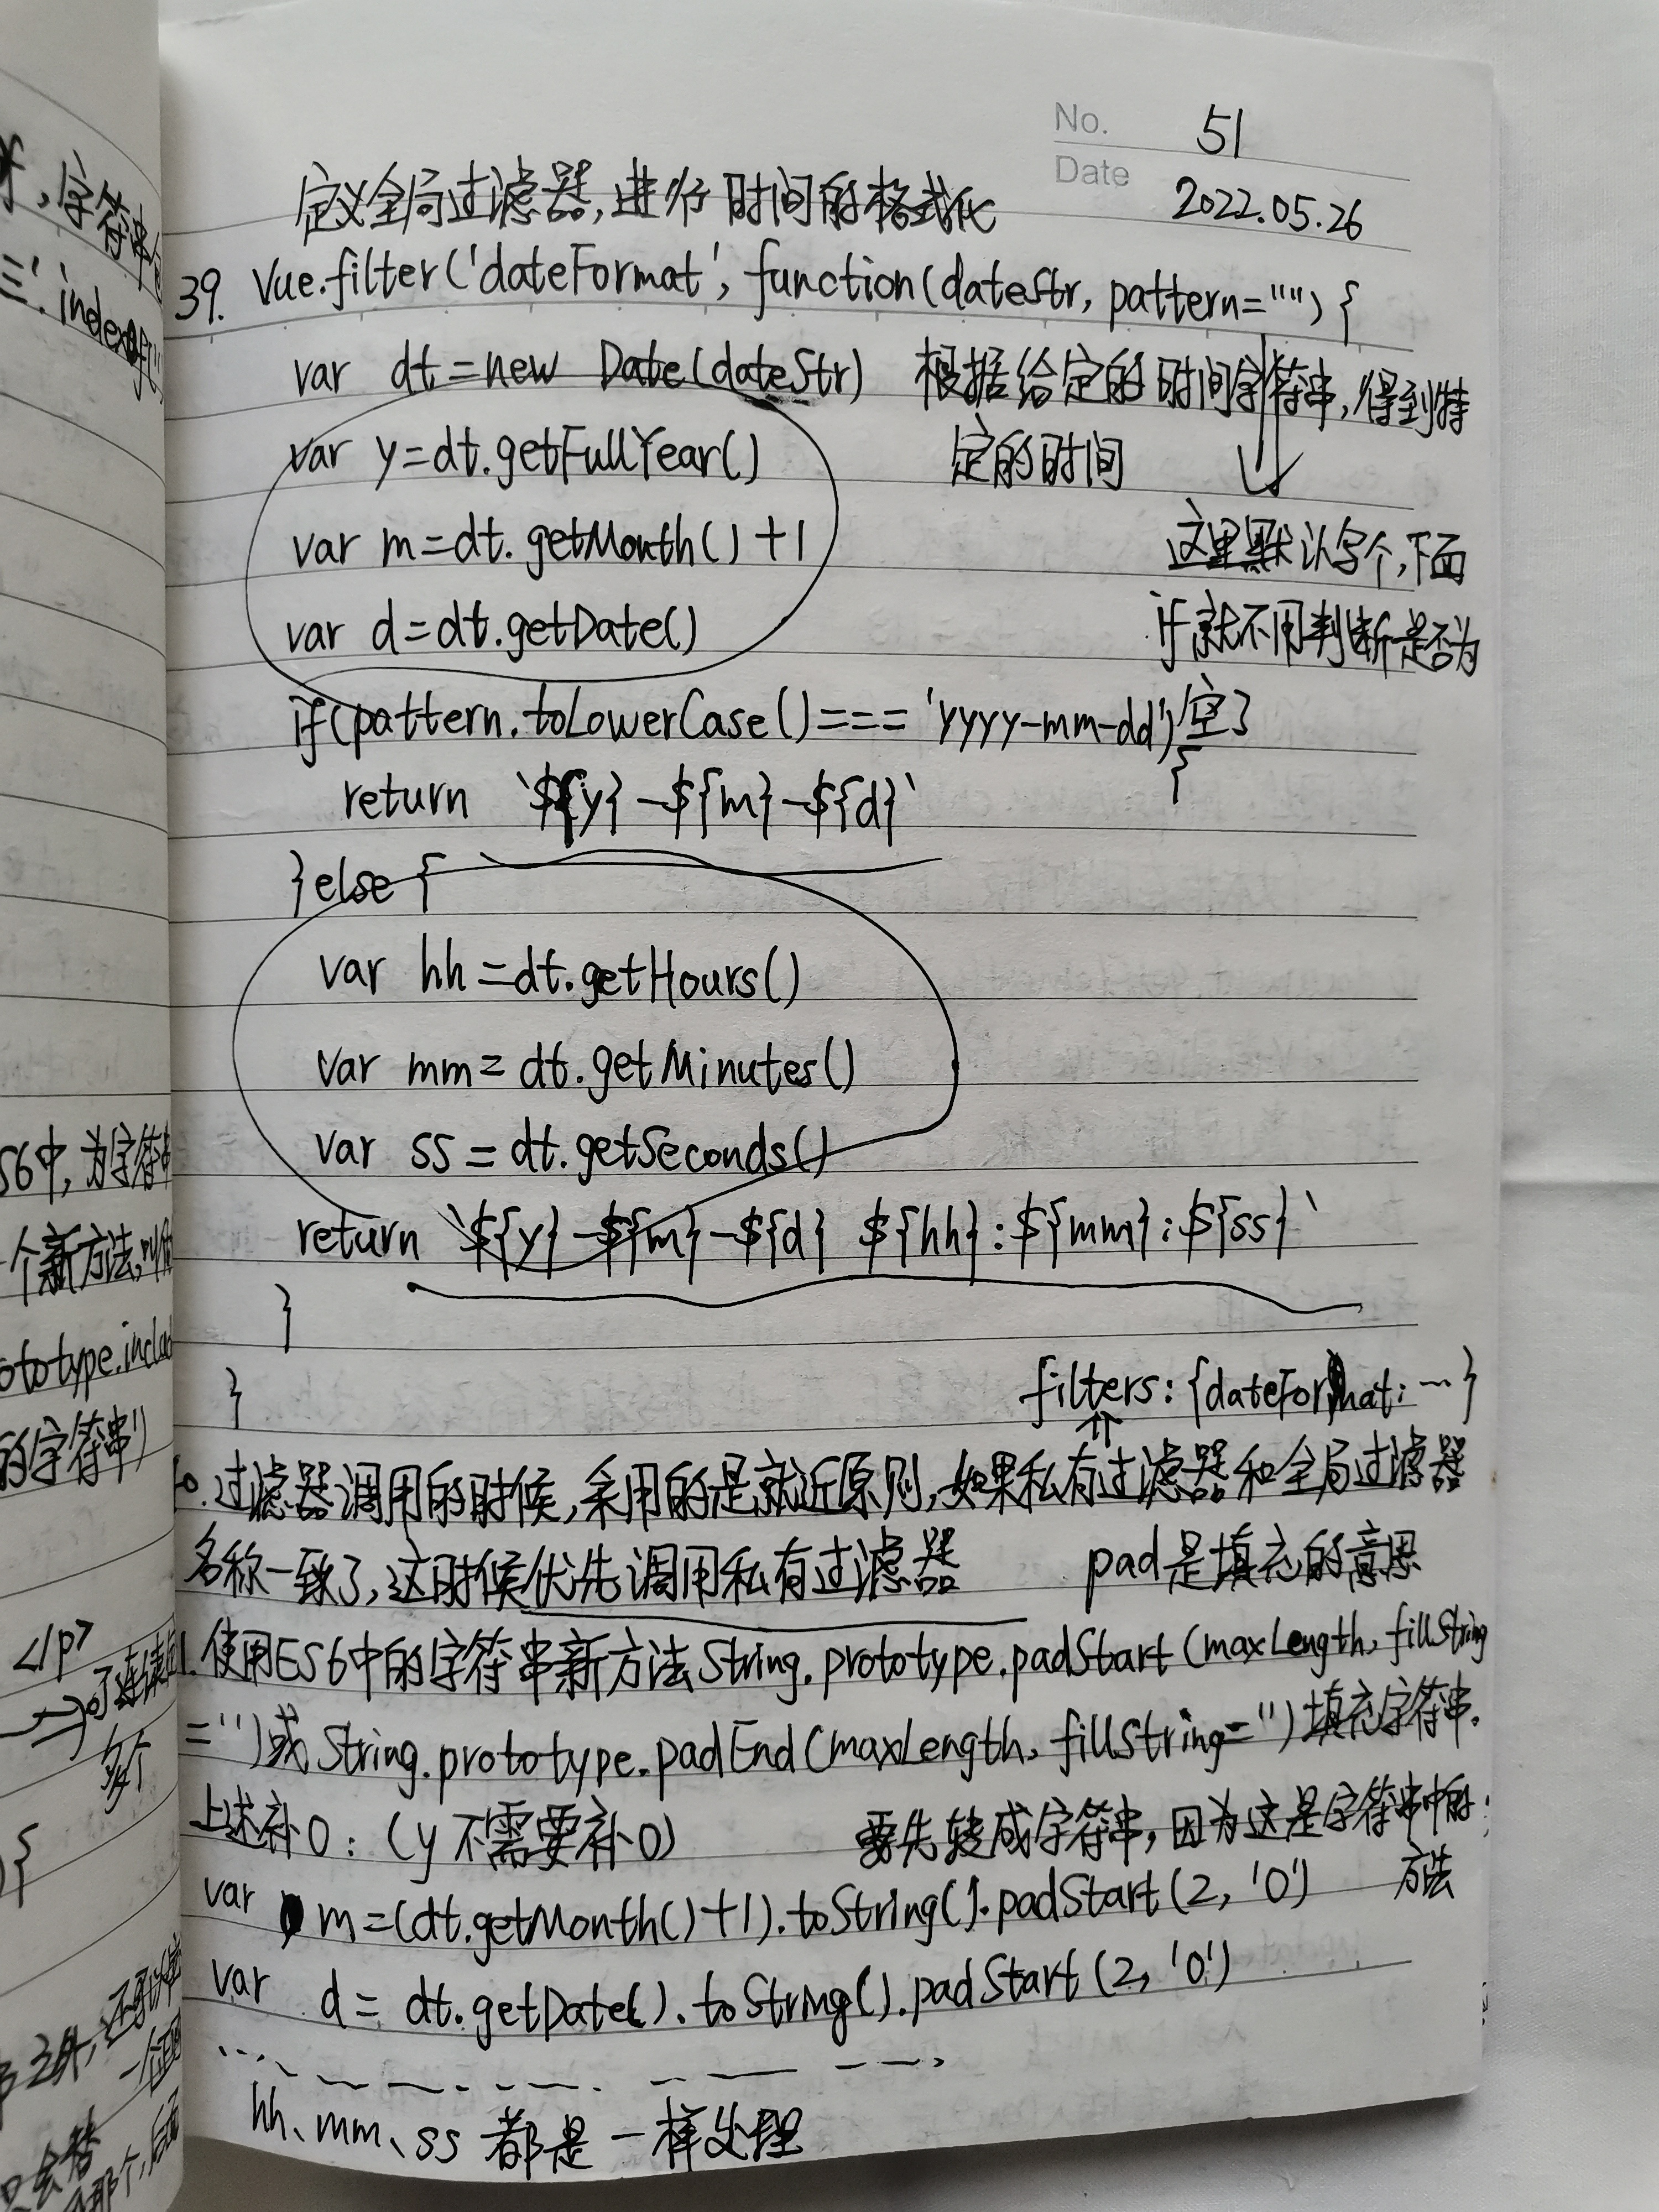 No. 51
Date 2022.05.26
定义全局过滤器,进行时间的格式化
39. Vue.filter('dateFormat', function(dateStr, pattern="") {
var dt=new Date(dateStr) 根据给定的时间字符串,得到特
定的时间
var y=dt.getFullYear()
var m=dt.getMonth()+1
这里默认字个,下面
var d=dt.getDate()
if就不用判断是否为
空了
if(pattern.toLowerCase()==='yyyy-mm-dd') {
return `${y}-${m}-${d}`
}else {
var hh=dt.getHours()
var mm=dt.getMinutes()
var ss=dt.getSeconds()
return `${y}-${m}-${d} ${hh}:${mm}:${ss}`
}
}
filters: {dateFormat: … }
0.过滤器调用的时候,采用的是就近原则,如果私有过滤器和全局过滤器
名称一致了,这时候优先调用私有过滤器
pad是填充的意思
1.使用ES6中的字符串新方法String.prototype.padStart(maxLength, fillString
='')或String.prototype.padEnd(maxLength, fillString='')填充字符串.
上述补0:(y不需要补0)
要先转成字符串,因为这是字符串中的
方法
var m=(dt.getMonth()+1).toString().padStart(2, '0')
var d=dt.getDate().toString().padStart(2, '0')
hh、mm、ss都是一样处理
,字符串
indexOf('
S6中,为字符串
一个新方法,叫做
ototype.includ
的字符串')
</p>
多个
{